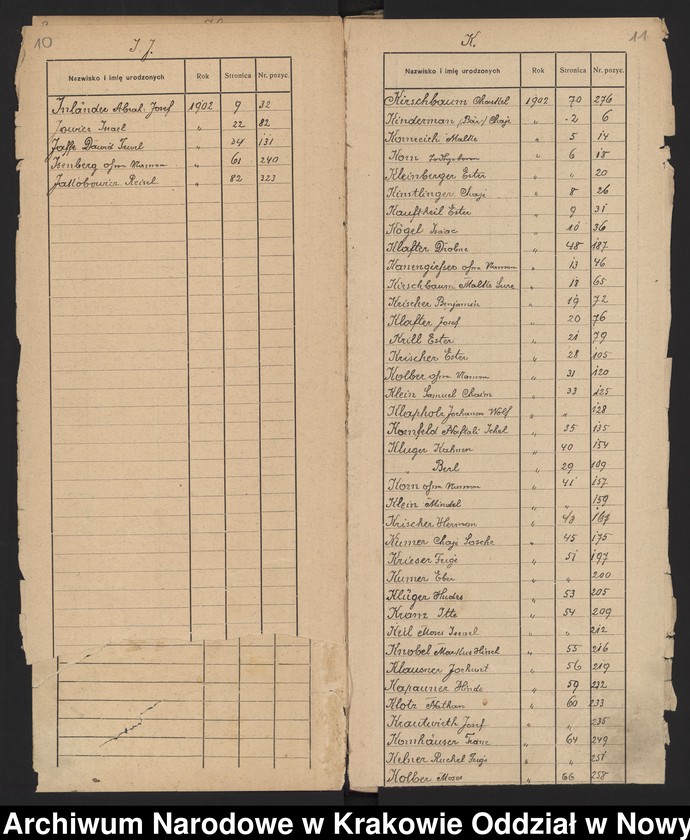 10
I. J.
Nazwisko i imię urodzonych Rok Stronica Nr. pozyc.
Inländer Abrah. Josef 1902 9 32
Jowicz Israel " 22 82
Jaffe Dawid Tewel " 34 131
Isenberg ohne Namen " 61 240
Jakóbowicz Reisel " 82 323
11
K.
Nazwisko i imię urodzonych Rok Stronica Nr. pozyc.
Kirschbaum Chaskel 1902 70 276
Kinderman /Bär/ Chaje " 2 6
Kornreich Malke " 5 14
Korn " 6 18
Kleinberger Ester " " 20
Kinstlinger Chaje " 8 26
Kauftheil Ester " 9 31
Kögel Isaac " 10 36
Klafter Drobne " 48 187
Kanengiesser ohne Namen " 13 46
Kirschbaum Malke Sure " 18 65
Krischer Benjamin " 19 72
Klafter Josef " 20 76
Krill Ester " 21 79
Krischer Ester " 28 105
Kolber ohne Namen " 31 120
Klein Samuel Chaim " 33 125
Klapholz Jochanan Wolf " " 128
Kornfeld Naftali Ichel " 35 135
Kluger Kalmen " 40 154
" Berl " 29 109
Korn ohne Namen " 41 157
Klein Mindel " " 159
Krischer Herman " 43 167
Kumer Chaje Sosche " 45 175
Krieser Feige " 51 197
Kumer " " 200
Klüger Hudes " 53 205
Kram Itte " 54 209
Keil Moses Israel " " 212
Knobel Markus Hirsch " 55 216
Klausner Jochwet " 56 219
Kapauner Hinde " 59 232
Klotz Nathan " 60 233
Krautwirth Josef " " 235
Kornhäuser " 64 249
Kelner Ruchel Feige " " 251
Kolber Moses " 66 258
Archiwum Narodowe w Krakowie Oddział w Nowy